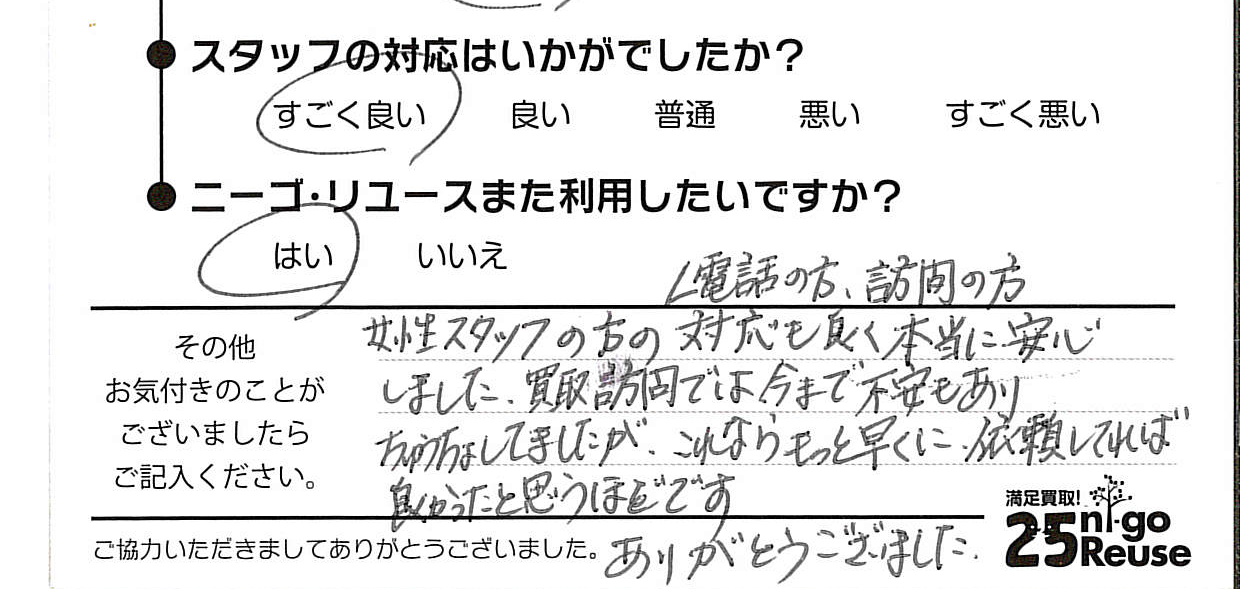 スタッフの対応はいかがでしたか？
すごく良い 良い 普通 悪い すごく悪い
ニーゴ・リユースまた利用したいですか？
はい いいえ
電話の方、訪問の方
その他
お気付きのことが
ございましたら
ご記入ください。
女性スタッフの方の対応も良く本当に安心
しました、買取訪問では今まで不安もあり
ちゅうちょしてましたが、これならもっと早くに、依頼してれば
良かったと思うほどです
満足買取！
25 ni-go
Reuse
ご協力いただきましてありがとうございました。
ありがとうございました。